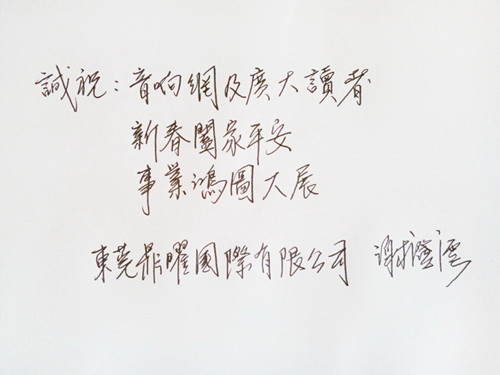 誠祝：音响網及廣大讀者
新春闔家平安
事業鴻圖大展
東莞鼎曜國際有限公司 謝